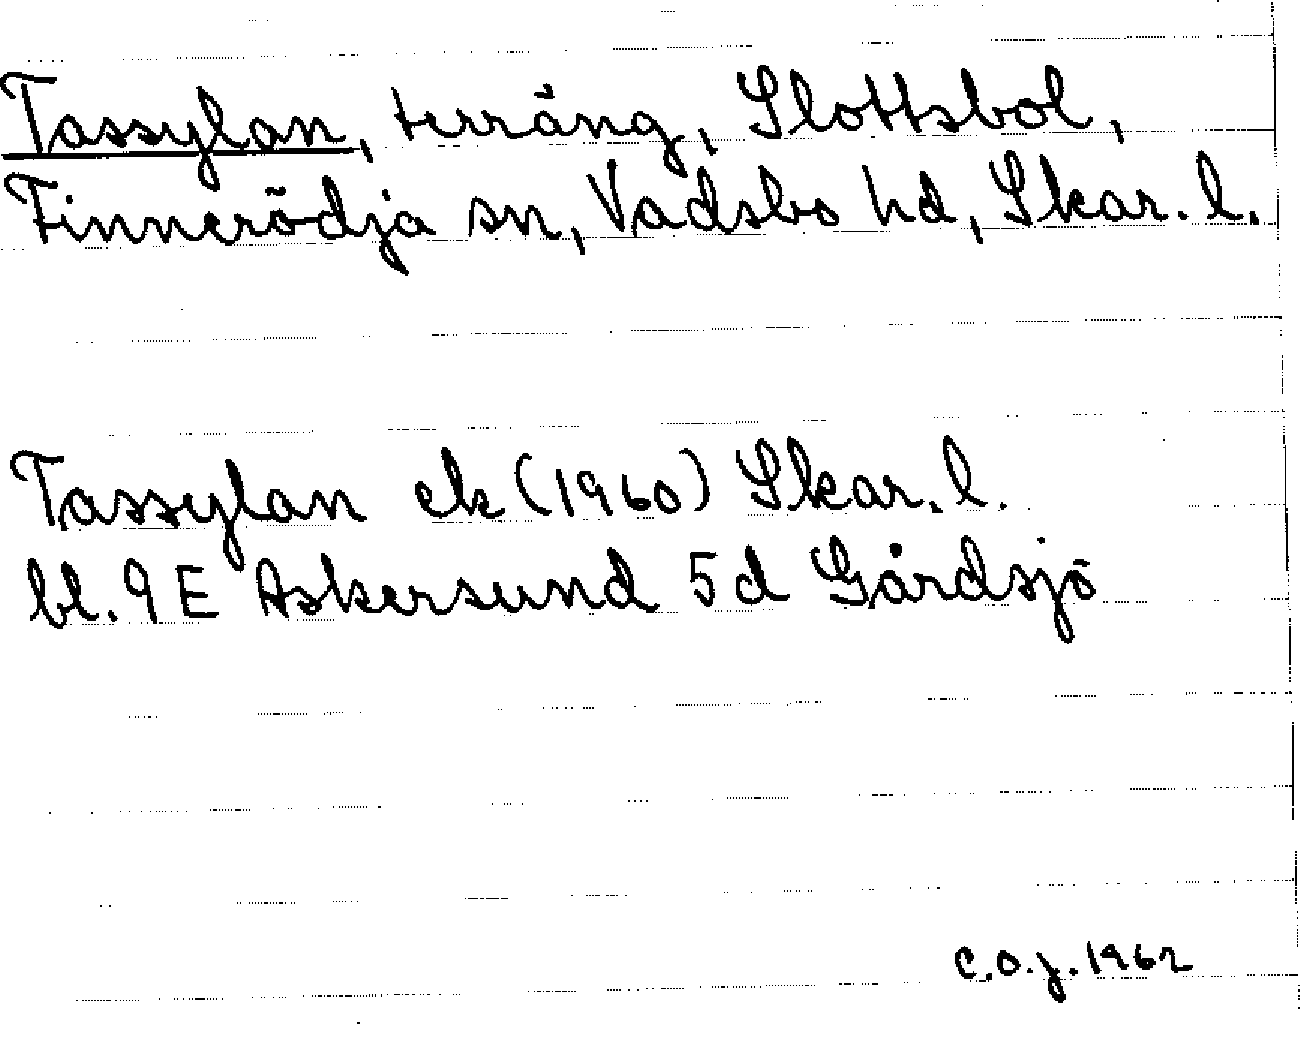 Tassylan, terräng, Slottsbol,
Finnerödja sn, Vadsbo hd, Skar. l.
Tassylan ek (1960) Skar. l.
bl. 9 E Askersund 5 d Gårdsjö
C.O.J. 1962